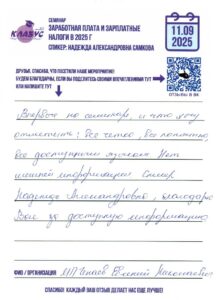 КЛАБУС
СЕМИНАР
ЗАРАБОТНАЯ ПЛАТА И ЗАРПЛАТНЫЕ
НАЛОГИ В 2025 Г
СПИКЕР: НАДЕЖДА АЛЕКСАНДРОВНА САМКОВА
11.09
2025
ДРУЗЬЯ, СПАСИБО, ЧТО ПОСЕТИЛИ НАШЕ МЕРОПРИЯТИЕ!
БУДЕМ БЛАГОДАРНЫ, ЕСЛИ ВЫ ПОДЕЛИТЕСЬ СВОИМИ ВПЕЧАТЛЕНИЯМИ ТУТ
ИЛИ НАПИШИТЕ ТУТ
ОТЗЫВЫ В ВК
Впервые на семинаре, и что хочу
отметить: все четко, все понятно,
все доступным языком. Нет
лишней информации. Спикер
Надежда Александровна, благодарю
Вас за доступную информацию.
ФИО / ОРГАНИЗАЦИЯ ИП Евгений
СПАСИБО! КАЖДЫЙ ВАШ ОТЗЫВ ДЕЛАЕТ НАС ЕЩЕ ЛУЧШЕ!